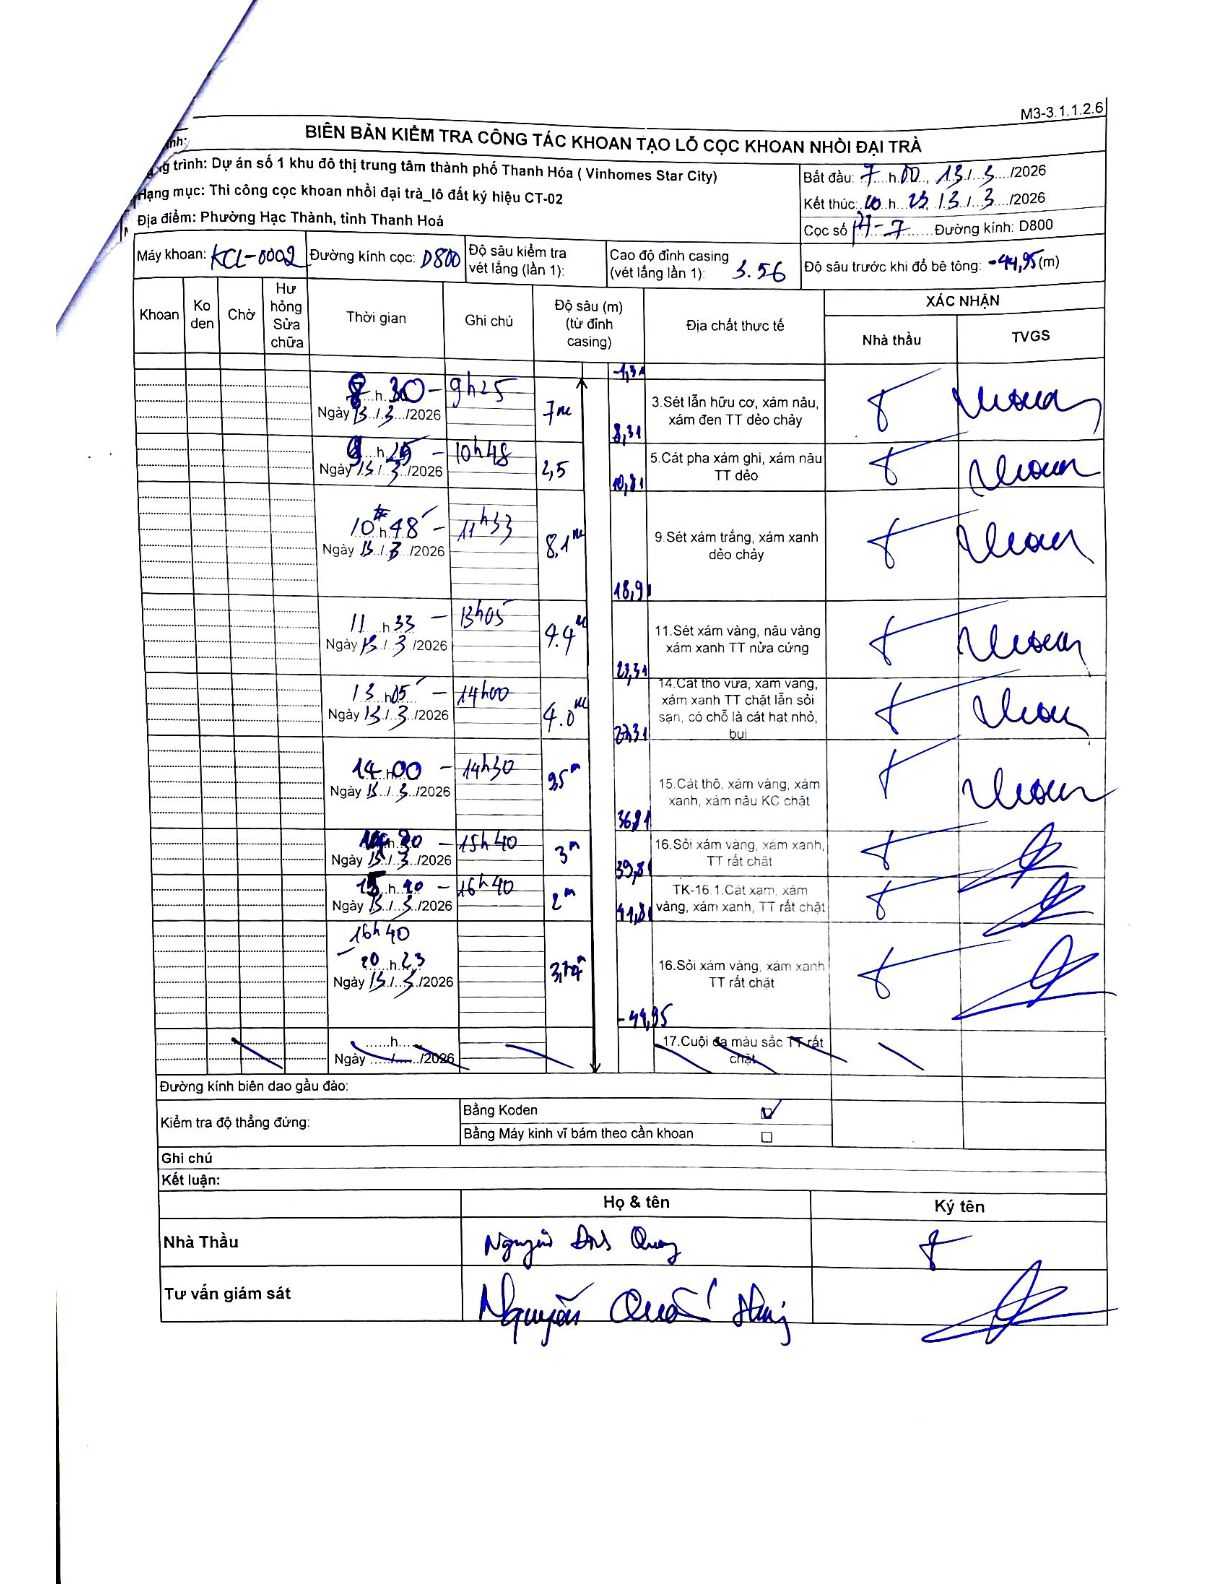 M3-3.1.1.2.6
BIÊN BẢN KIỂM TRA CÔNG TÁC KHOAN TẠO LỖ CỌC KHOAN NHỒI ĐẠI TRÀ
trình: Dự án số 1 khu đô thị trung tâm thành phố Thanh Hóa ( Vinhomes Star City)
Hạng mục: Thi công cọc khoan nhồi đại trà_lô đất ký hiệu CT-02
Địa điểm: Phường Hạc Thành, tỉnh Thanh Hoá
Bắt đầu: 7 h 00, 13/3/2026
Kết thúc: 20 h 23, 13/3/2026
Cọc số Đường kính: D800
Máy khoan: KCL-0002
Đường kính cọc: D800
Độ sâu kiểm tra vét lắng (lần 1):
Cao độ đỉnh casing (vét lắng lần 1): 3.56
Độ sâu trước khi đổ bê tông: -44,95(m)
Khoan Ko den Chờ Hư hỏng Sửa chữa Thời gian Ghi chú Độ sâu (m) (từ đỉnh casing) Địa chất thực tế XÁC NHẬN
Nhà thầu TVGS
-1,31
8 h 30 - 9h25 7m 3.Sét lẫn hữu cơ, xám nâu, xám đen TT dẻo chảy
Ngày 13/3/2026 8,31
9 h 25 - 10h48 2,5 5.Cát pha xám ghi, xám nâu TT dẻo
Ngày 13/3/2026 10,81
10 h 48 - 11h33 8.1m 9.Sét xám trắng, xám xanh dẻo chảy
Ngày 13/3/2026 18,91
11 h 33 - 13h05 4.4m 11.Sét xám vàng, nâu vàng xám xanh TT nửa cứng
Ngày 13/3/2026 23,31
13 h 05 - 14h00 4.0m 14.Cát thô vừa, xám vàng, xám xanh TT chặt lẫn sỏi sạn, có chỗ là cát hạt nhỏ, bụi
Ngày 13/3/2026 27,31
14 h 00 - 14h30 9,5m 15.Cát thô, xám vàng, xám xanh, xám nâu KC chặt
Ngày 13/3/2026 36,81
- 15h40 3m 16.Sỏi xám vàng, xám xanh, TT rất chặt
Ngày 13/3/2026 39,81
- 16h40 2m TK-16.1.Cát xám, xám vàng, xám xanh, TT rất chặt
Ngày 13/3/2026 41,81
16h40 - 20 h 23 16.Sỏi xám vàng, xám xanh TT rất chặt
Ngày 13/3/2026 -44,95
......h.... 17.Cuội đa màu sắc TT rất chặt
Ngày ...../....../2026
Đường kính biên dao gầu đào:
Kiểm tra độ thẳng đứng: Bằng Koden ☑
Bằng Máy kinh vĩ bám theo cần khoan ☐
Ghi chú
Kết luận:
Họ & tên Ký tên
Nhà Thầu Nguyễn
Tư vấn giám sát Nguyễn Quốc Huy